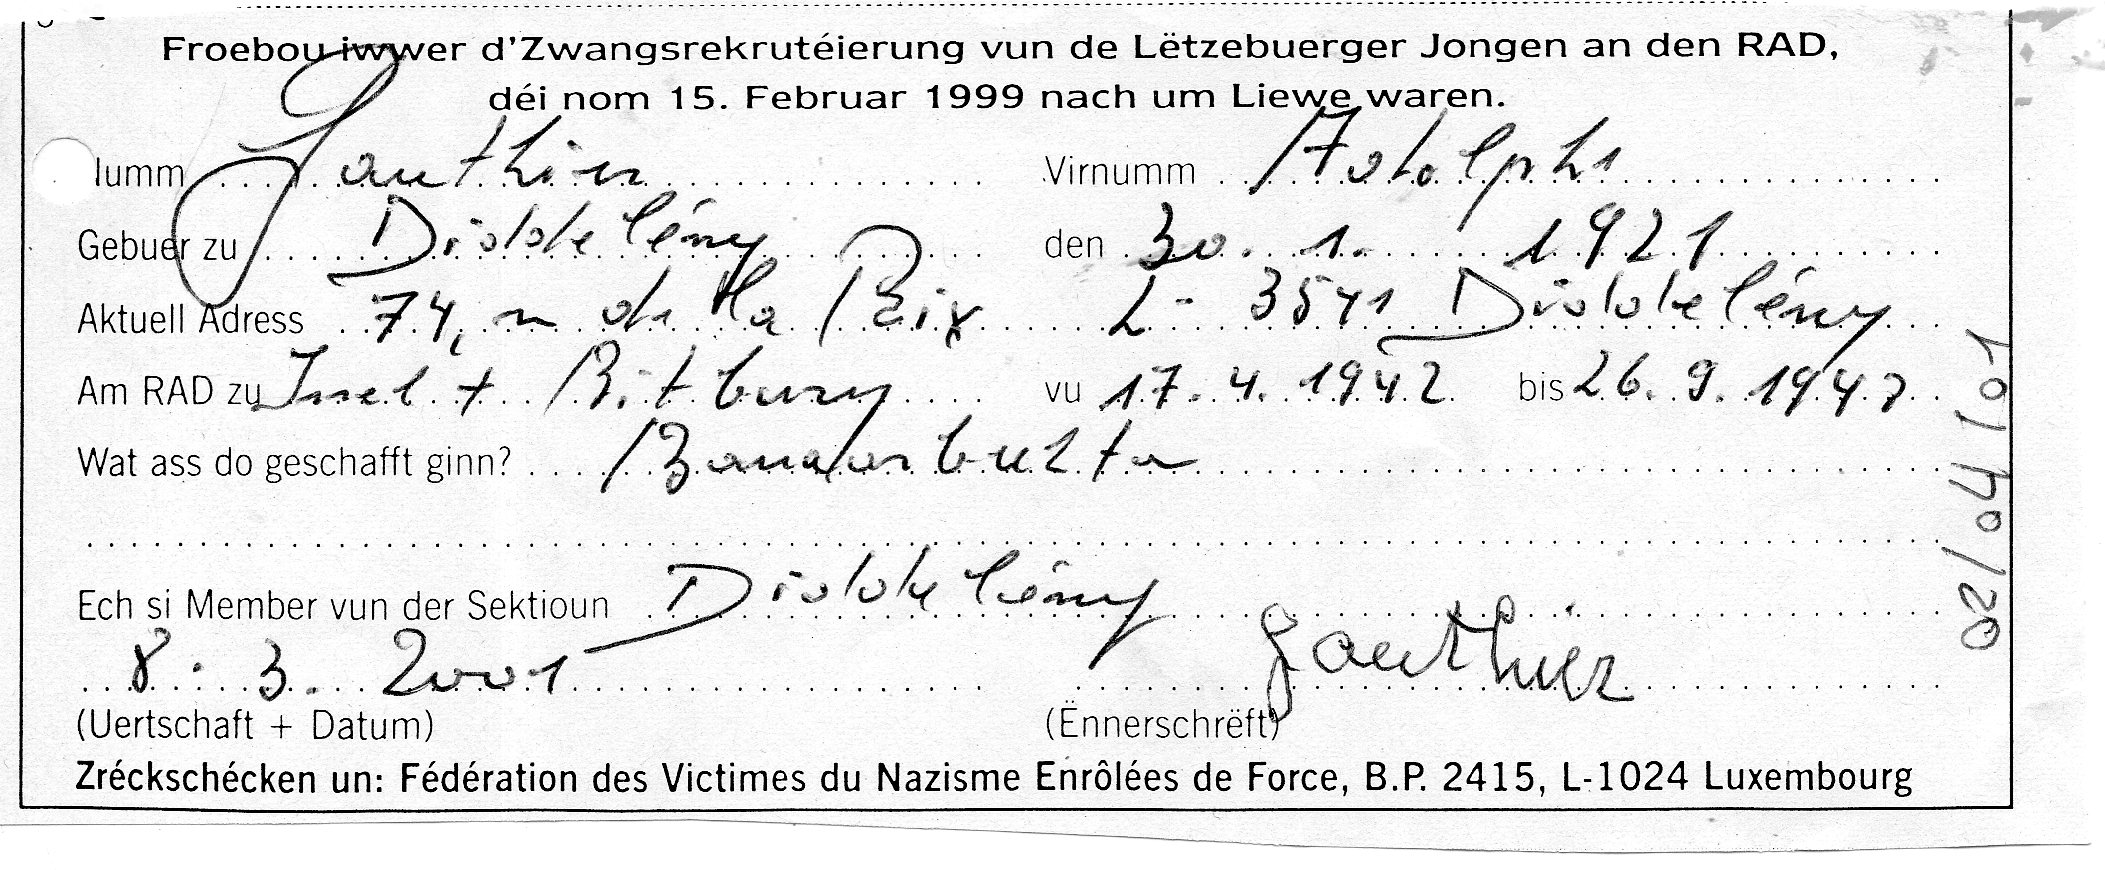 Froebou iwwer d'Zwangsrekrutéierung vun de Lëtzebuerger Jongen an den RAD,
déi nom 15. Februar 1999 nach um Liewe waren.
Numm Gauthier Virnumm Adolphe
Gebuer zu Diddeléng den 30. 1. 1921
Aktuell Adress 74, r. de la Paix L-3541 Diddeléng
Am RAD zu Insel + Bitburg vu 17.4.1942 bis 26.9.1942
Wat ass do geschafft ginn?
Ech si Member vun der Sektioun Diddeléng
8. 3. 2001 Gauthier
(Uertschaft + Datum) (Ënnerschrëft)
Zréckschécken un: Fédération des Victimes du Nazisme Enrôlées de Force, B.P. 2415, L-1024 Luxembourg
02/04/01